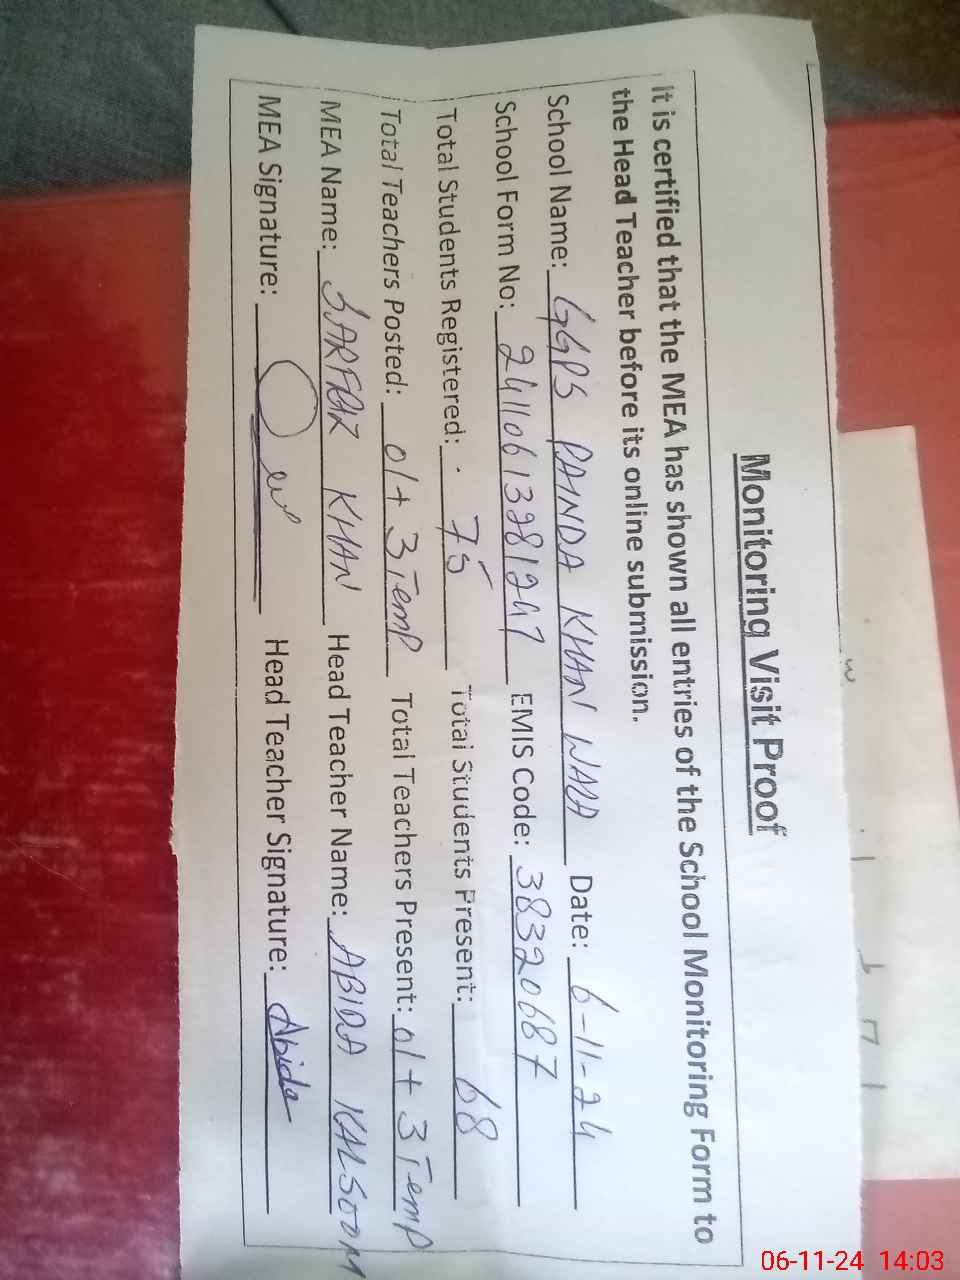 Monitoring Visit Proof
It is certified that the MEA has shown all entries of the School Monitoring Form to
the Head Teacher before its online submission.
School Name: GGPS PAINDA KHAN WALA Date: 6-11-24
School Form No: 24110613281247 EMIS Code: 38320687
Total Students Registered: 75 Total Students Present: 68
Total Teachers Posted: 01 + 3 Temp Total Teachers Present: 01 + 3 Temp
MEA Name: SARFRAZ KHAN Head Teacher Name: ABIDA KALSOOM
MEA Signature: Head Teacher Signature: Abida
06-11-24 14:03